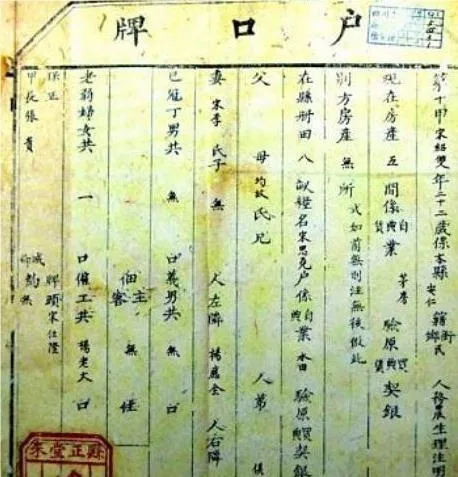 户口牌
第十甲宋绍双年二十二歲係本縣安仁鄉籍民人務農生理注明
現在房產五間係自業茅房驗原買契銀
別方房產無所式如前無則注無後倣此
在縣册田八畝糧名宋思克户係自業水田驗原買契銀
父母均故氏兄人弟
妻宋李氏子無人左隣楊應全人右隣
已冠丁男共無口義男共無口
主佃客無住
老弱婦女共一口僱工共楊老大口
牌頭宋仕陞
保正甲長張貴
約無
縣正堂朱